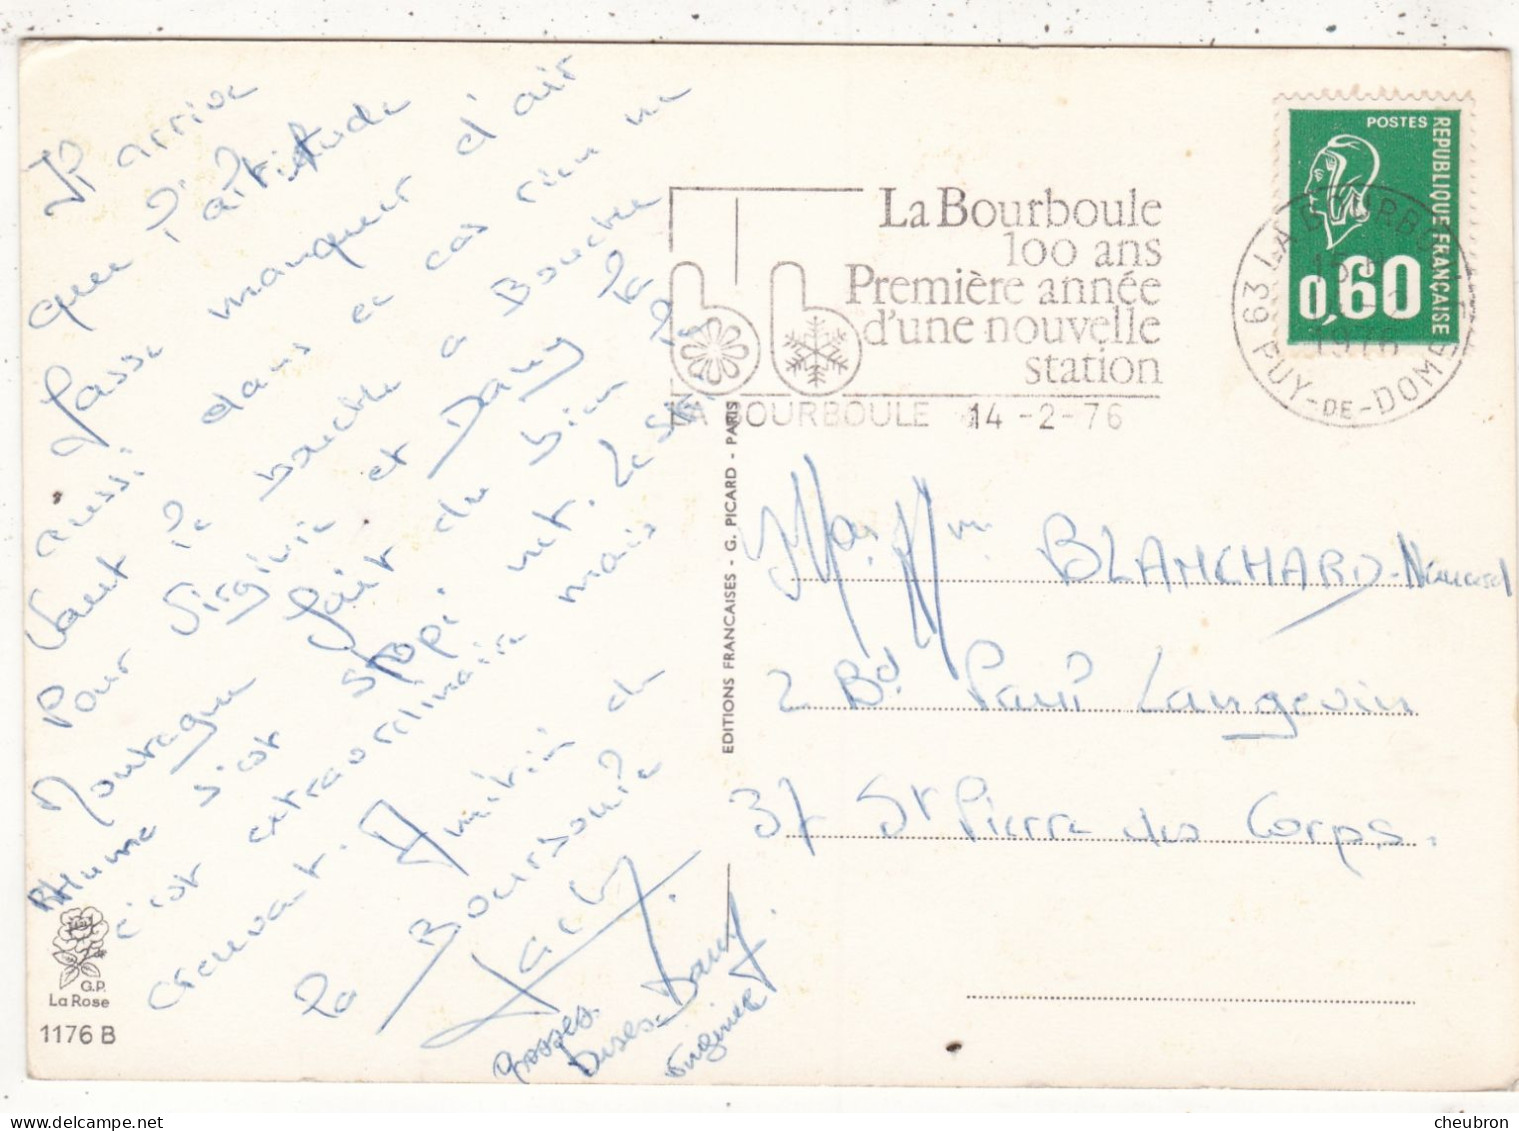 Il arrive
que l'altitude
fasse manquer d'air
aussi dans ce cas rien ne
vaut le bouche a Bouche
Pour Virginie et Dany la
Montagne fait du bien le
Rhume s'est stoppé net. Le ski
c'est extraordinaire mais
crevant. Amitiés de
La Bourboule
Grosses
bises. Dany
Virginie
La Bourboule
100 ans
Première année
d'une nouvelle
station
LA BOURBOULE 14 -2-76
POSTES
REPUBLIQUE FRANÇAISE
0,60
63 LA BOURBOULE
1976
PUY-DE-DOME
EDITIONS FRANCAISES - G. PICARD - PARIS
Mr. Mme BLANCHARD
2 Bd Paul Langevin
37 St Pierre des Corps.
G.P.
La Rose
1176 B
delcampe.net
cheubron